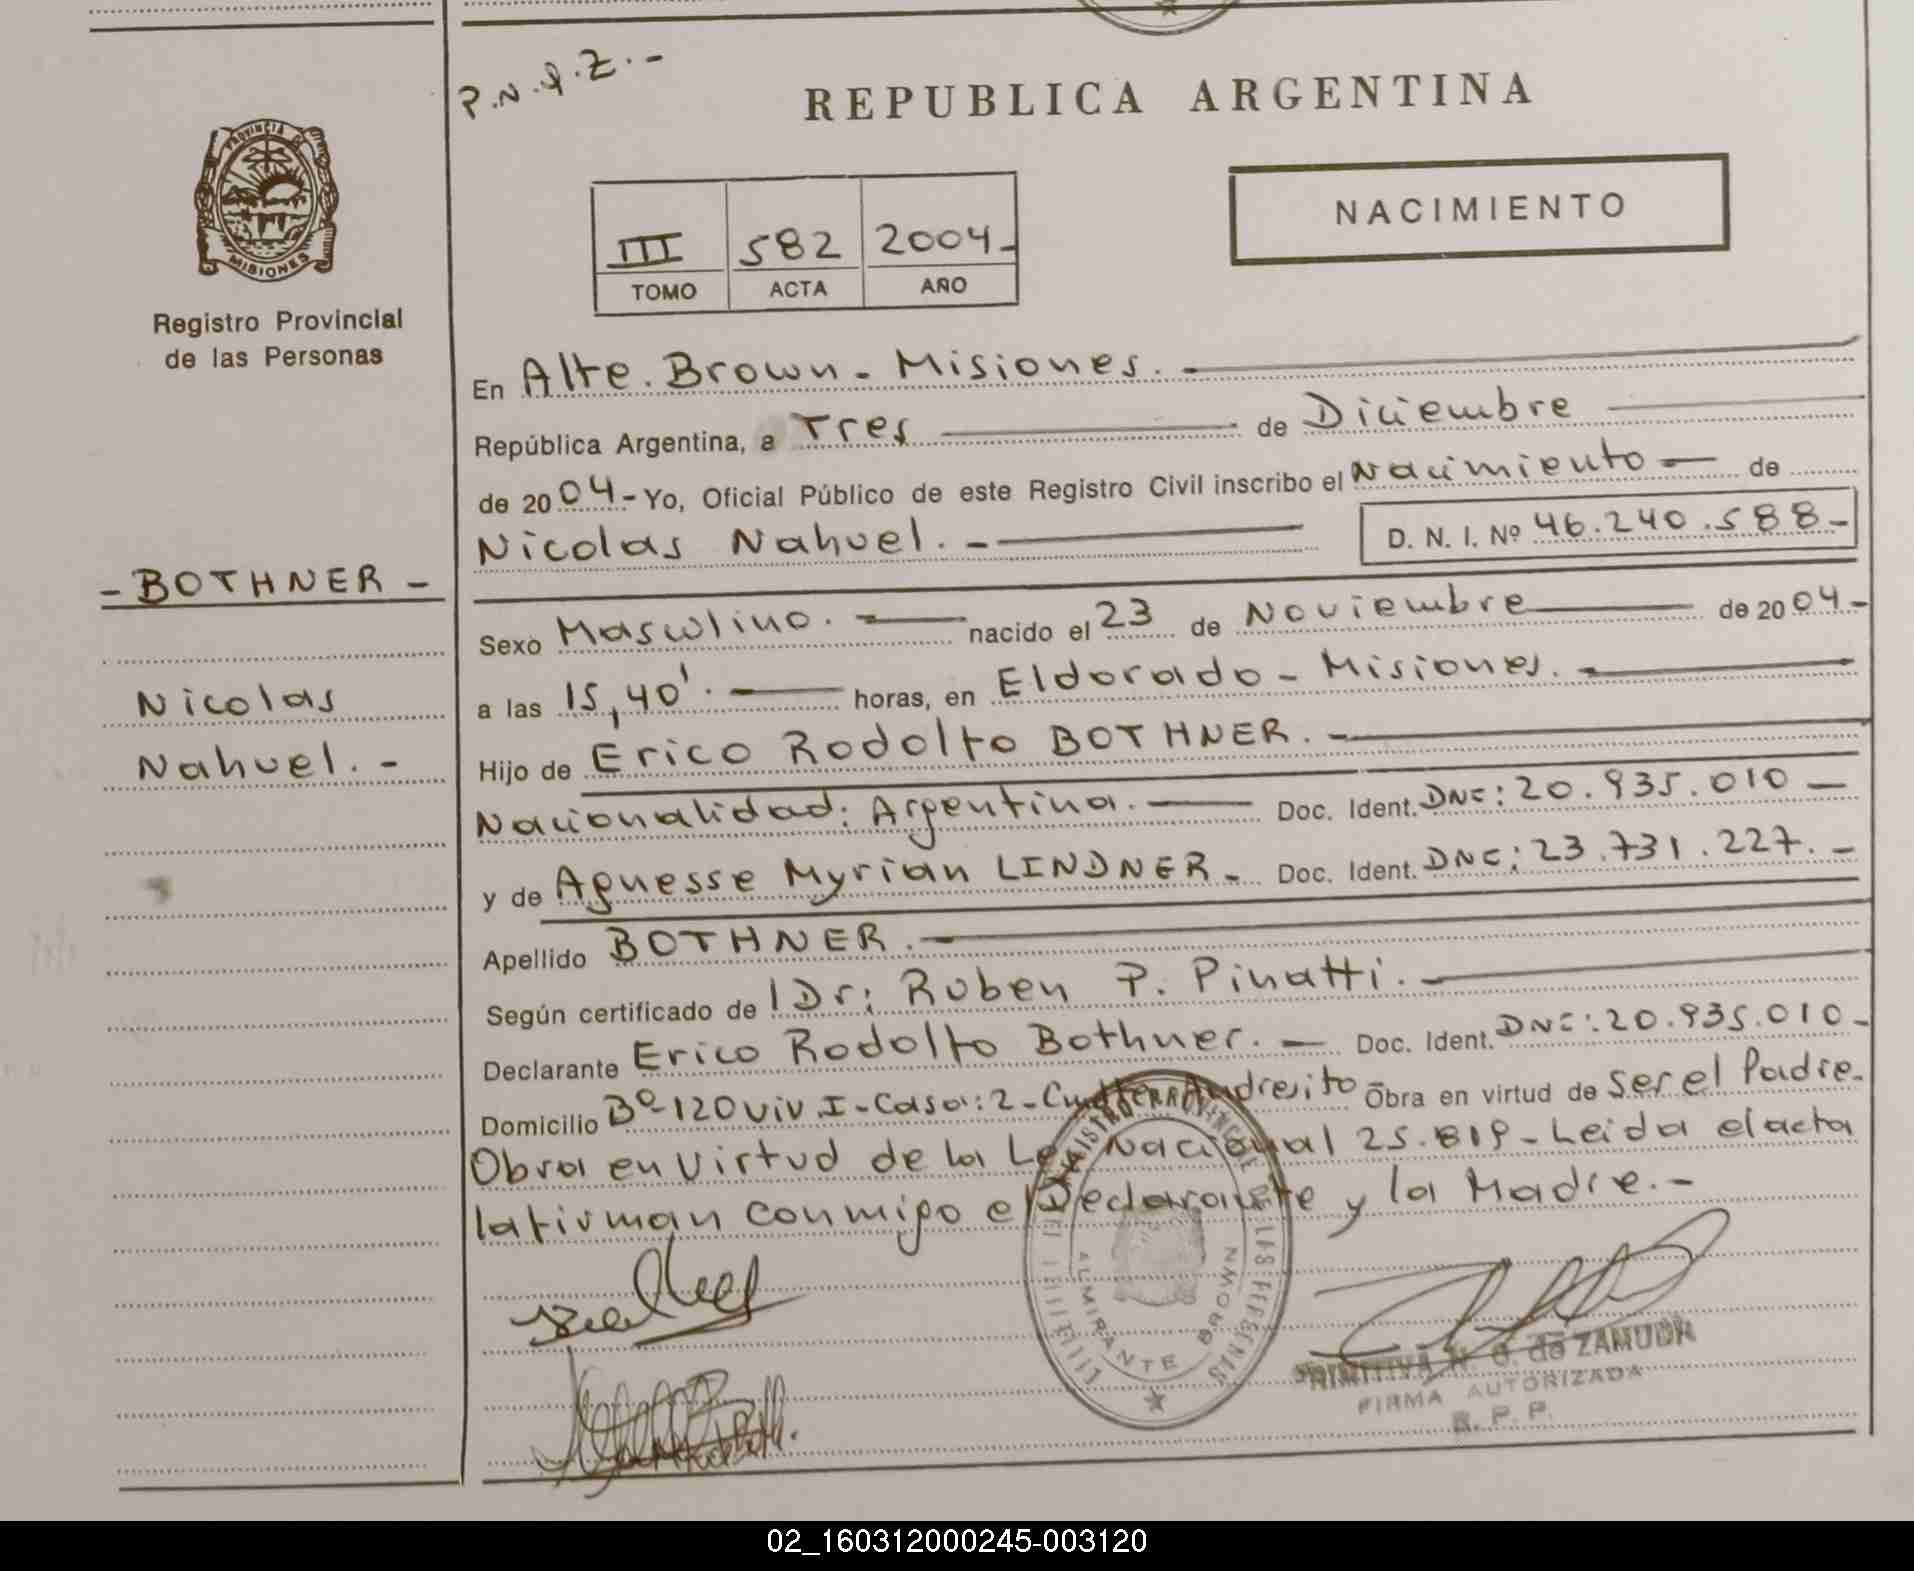 P.N.Q.Z.-
REPUBLICA ARGENTINA
PROVINCIA DE
MISIONES
Registro Provincial
de las Personas
III 582 2004-
TOMO ACTA AÑO
NACIMIENTO
- BOTHNER -
Nicolas
Nahuel. -
En Alte. Brown - Misiones. -
República Argentina, a Tres de Diciembre
de 2004- Yo, Oficial Público de este Registro Civil inscribo el Nacimiento - de
Nicolas Nahuel. -
D. N. I. Nº 46.240.588-
Sexo Masculino. - nacido el 23 de Noviembre de 2004-
a las 15,40'. - horas, en Eldorado - Misiones. -
Hijo de Erico Rodolfo BOTHNER. -
Nacionalidad: Argentina. - Doc. Ident. DNI: 20.935.010 -
y de Agnesse Myrian LINDNER - Doc. Ident. DNI: 23.731.227. -
Apellido BOTHNER. -
Según certificado de 1 Dr: Ruben P. Pinatti. -
Declarante Erico Rodolfo Bothner. - Doc. Ident. DNI: 20.935.010-
Domicilio Bº-120 Viv. I-Casa: 2- Andresito Obra en virtud de ser el Padre-
Obra en Virtud de la Ley Nacional 25.819- Leida el acta
la firman conmigo el Declarante y la Madre. -
REGISTRO PROVINCIAL DE LAS PERSONAS
ALMIRANTE BROWN
PRIMITIVA N. G. de ZAMUDIO
FIRMA AUTORIZADA
R. P. P.
02_160312000245-003120